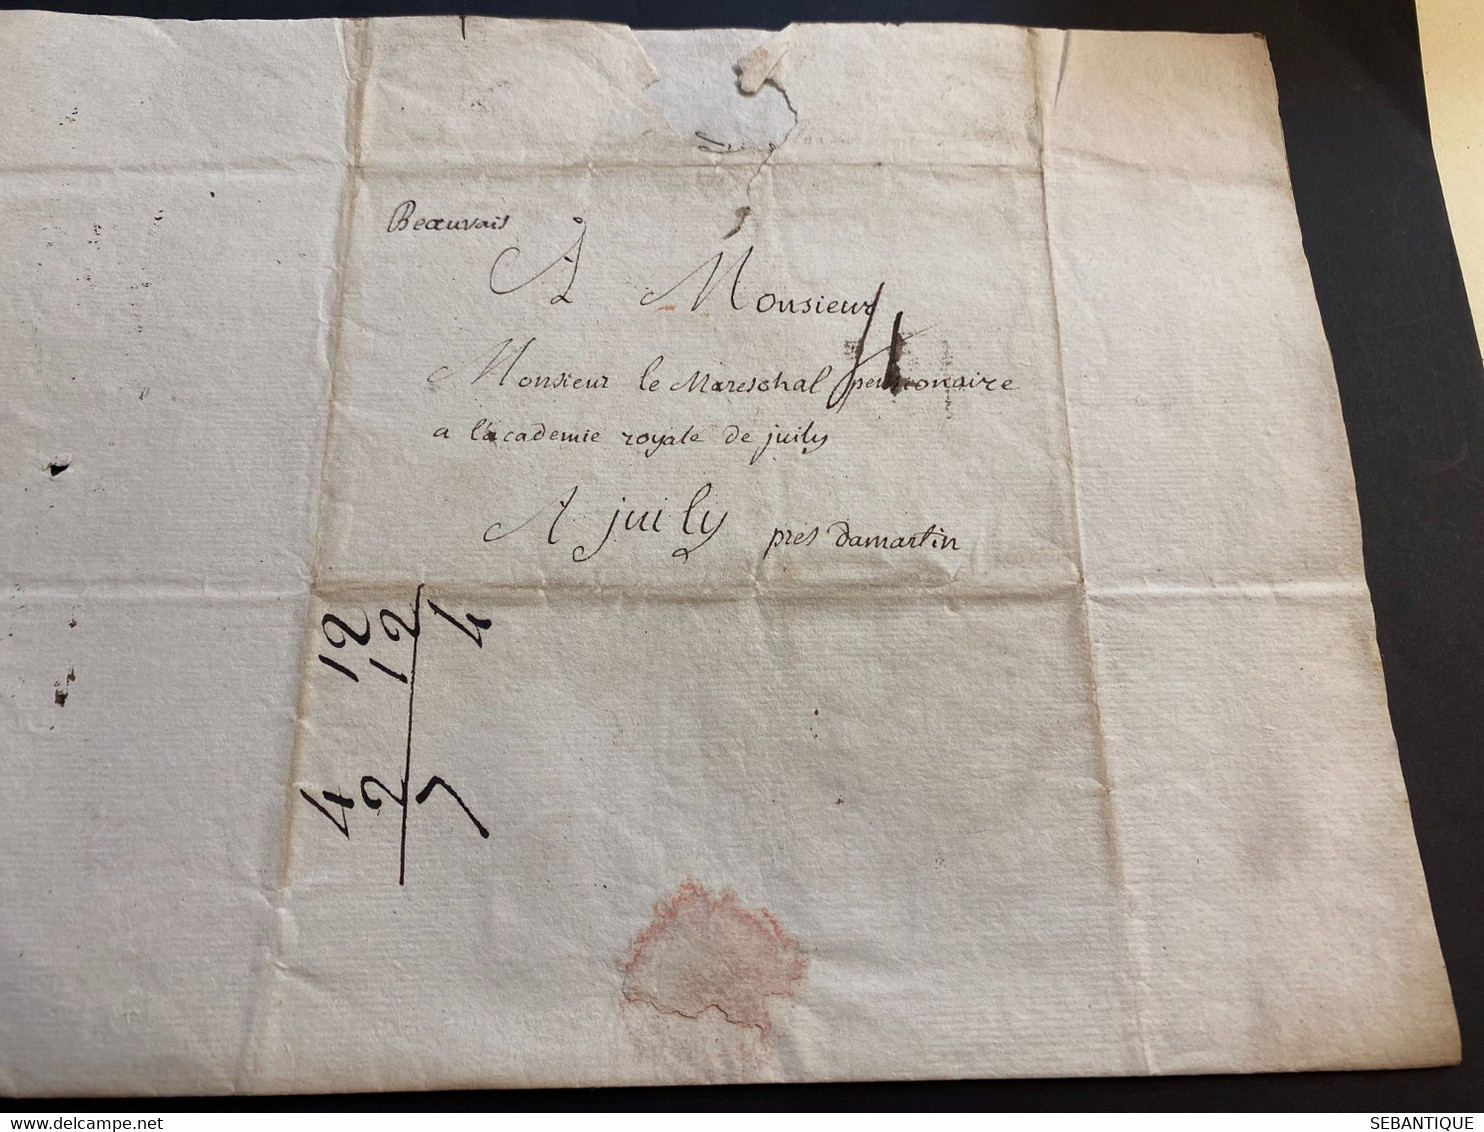 Beauvais
A Monsieur
Monsieur le Mareschal pensionaire
a l'academie royale de juily
A juily pres damartin
12
12
4
4
2
7
SEBANTIQUE